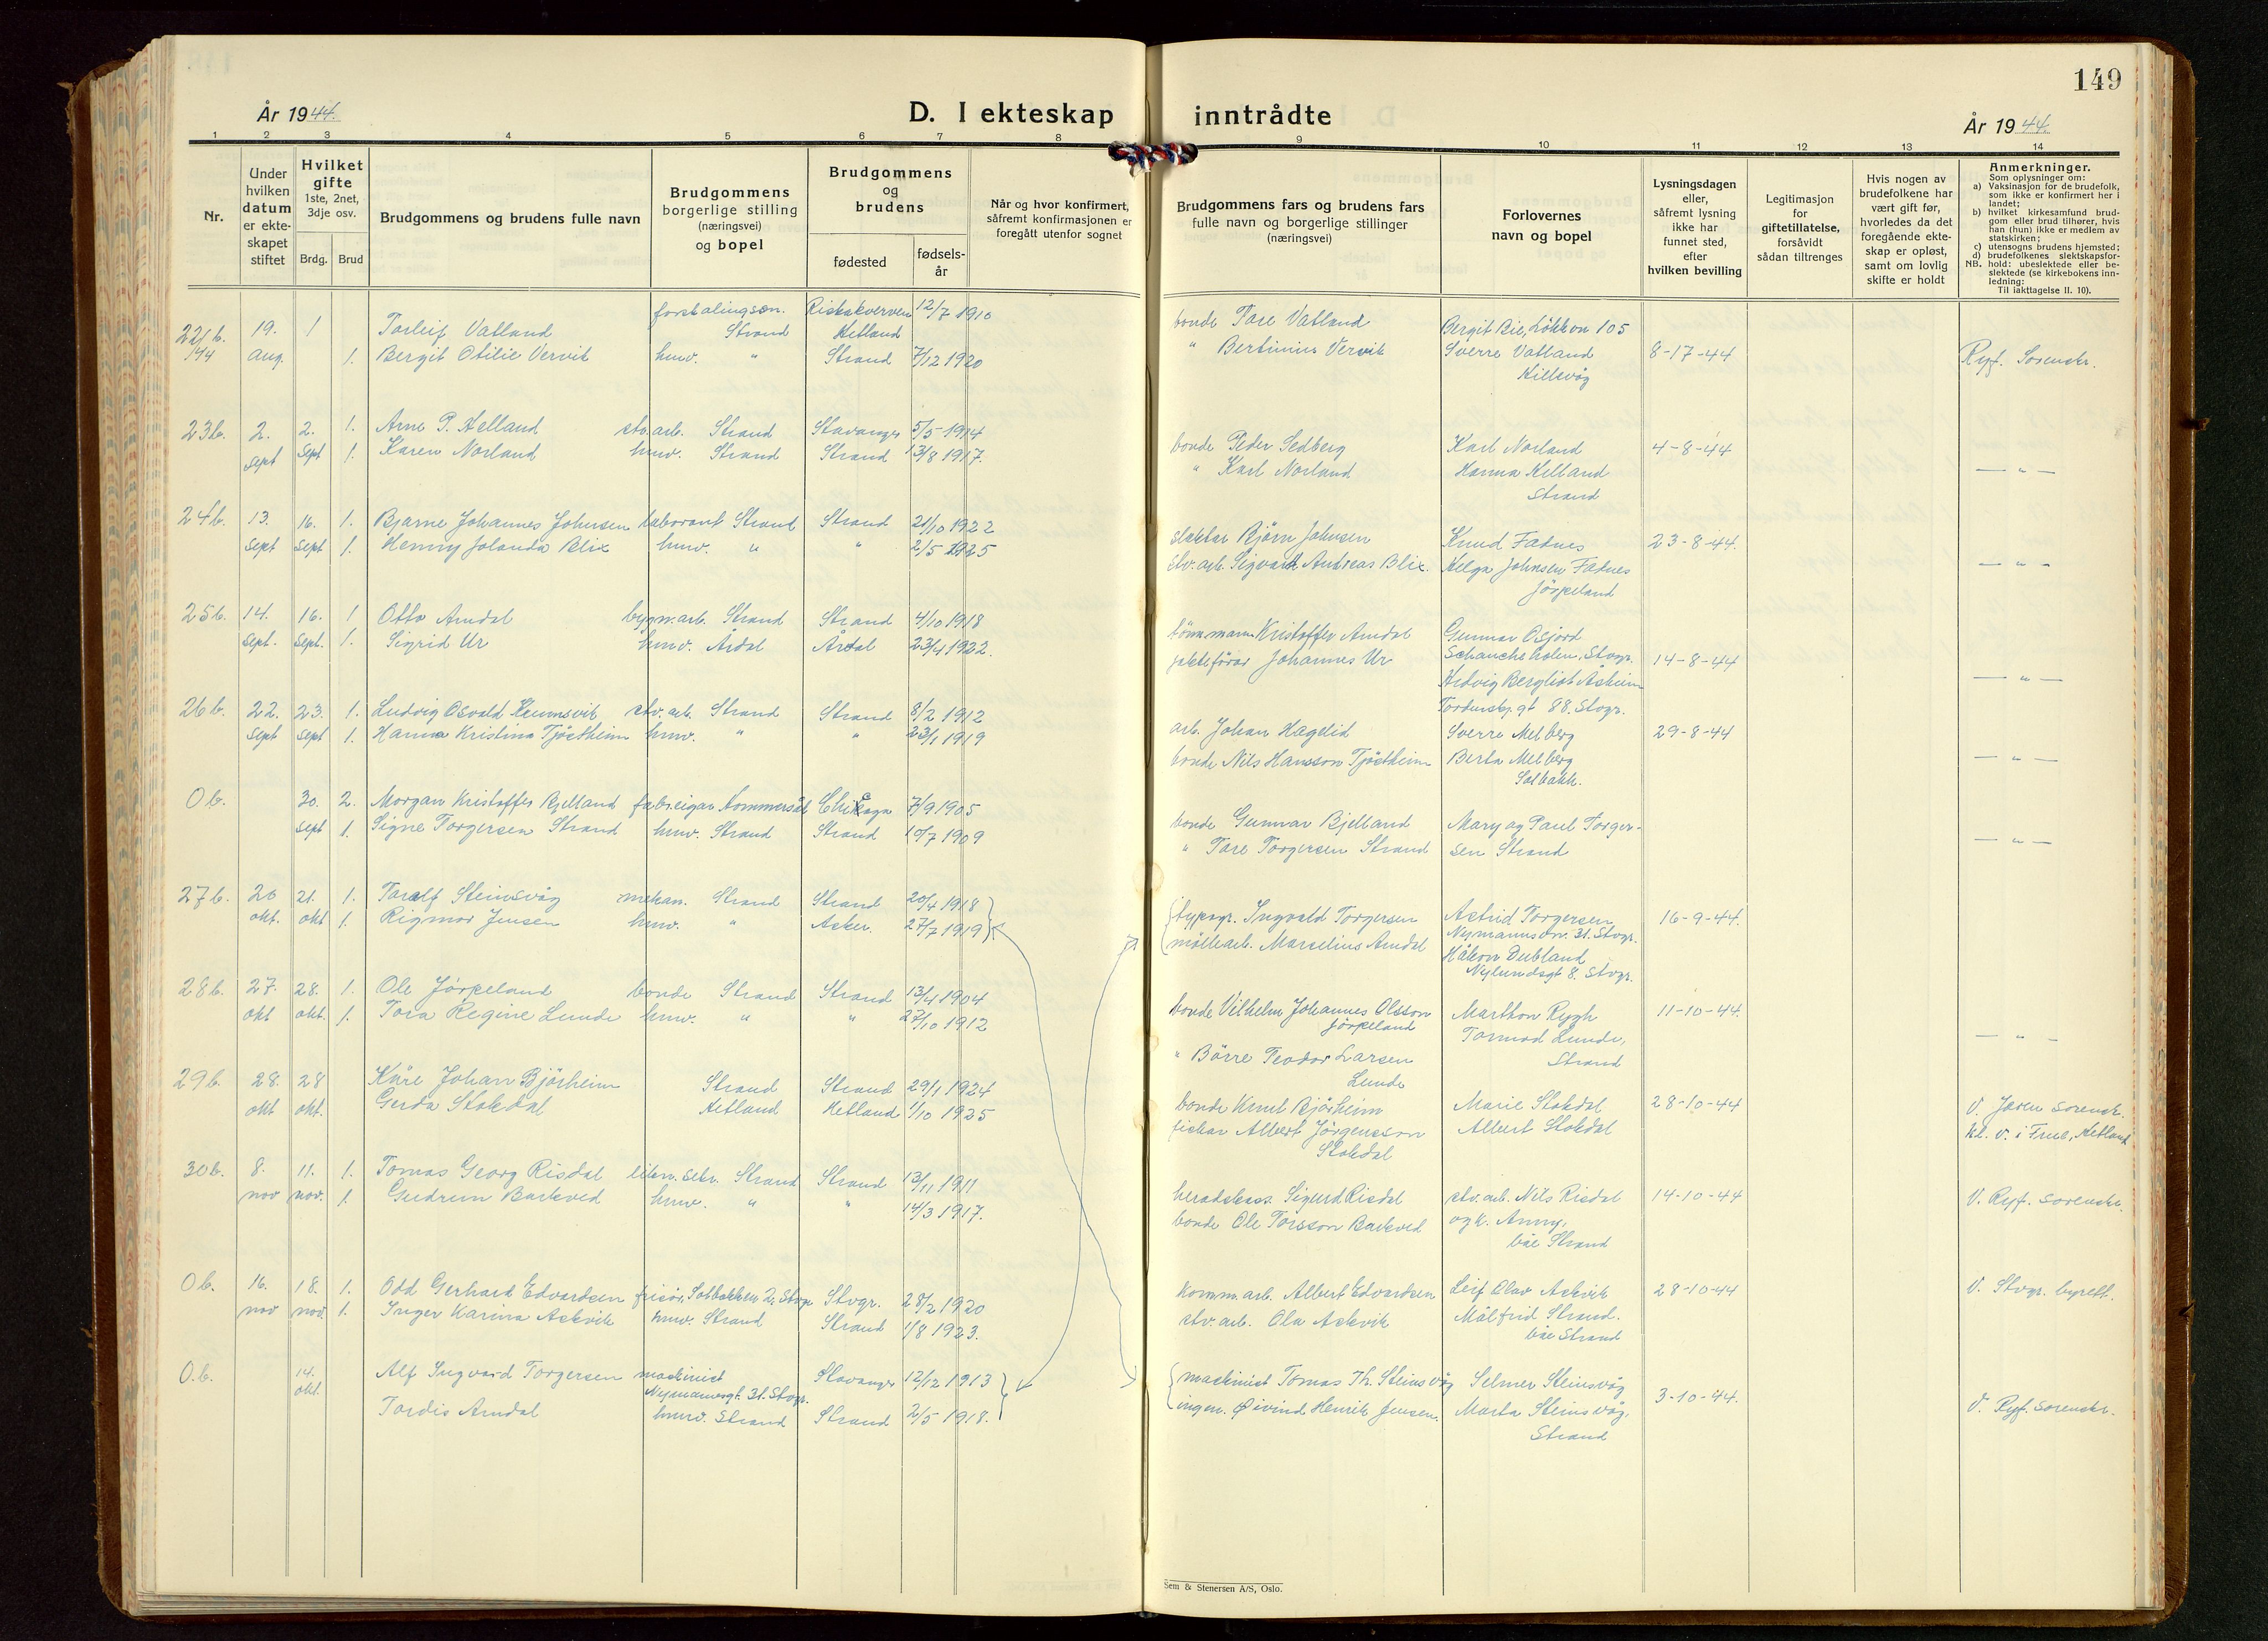 149
År 1944.
D. I ekteskap inntrådte
År 1944.
1 2 3 4 5 6 7 8 9 10 11 12 13 14
Nr.
Under hvilken datum er ekteskapet stiftet
Hvilket gifte 1ste, 2net, 3dje osv.
Brdg. Brud
Brudgommens og brudens fulle navn
Brudgommens borgerlige stilling (næringsvei) og bopel
Brudgommens og brudens
fødested
fødselsår
Når og hvor konfirmert, såfremt konfirmasjonen er foregått utenfor sognet
Brudgommens fars og brudens fars fulle navn og borgerlige stillinger (næringsvei)
Forlovernes navn og bopel
Lysningsdagen eller, såfremt lysning ikke har funnet sted, efter hvilken bevilling
Legitimasjon for giftetillatelse, forsåvidt sådan tiltrenges
Hvis nogen av brudefolkene har vært gift før, hvorledes da det foregående ekteskap er opløst, samt om lovlig skifte er holdt
Anmerkninger.
Som oplysninger om:
a) Vaksinasjon for de brudefolk, som ikke er konfirmert her i landet;
b) hvilket kirkesamfund brudgom eller brud tilhører, hvis han (hun) ikke er medlem av statskirken;
c) utensogns brudens hjemsted;
d) brudefolkenes slektskapsforhold: ubeslektede eller beslektede (se kirkebokens innledning:
NB. Til iakttagelse II. 10).
22b. /44 19. 1 Torleif Vatland Strand Riskakverven Hetland 12/7 1910 bonde Tore Vatland Bergit Bie, Lökkvn 105
aug. 1. Bergit Otilie Vervik hmv. " Strand 7/12 1920 " Bertinius Vervik Sverre Vatland 8-17-44 Ryf. Sorenskr.
Killevåg
23b. 2. 2. 1. Arne P. Helland stv.arb. Strand Stavanger 5/5 1914 bonde Peder Sedberg Karl Norland 4-8-44
sept sept 1. Karen Norland hmv. Strand Strand 13/8 1917. " Karl Norland Hanna Helland — " —
Strand
24b. 13. 16. 1. Bjarne Johannes Johnsen laborant Strand Strand 21/10 1922 slakter Björn Johnsen Knud Fadnes 23-8-44.
sept sept 1. Henny Jolanda Blix hmv. " " 2/5 1925 stv.arb. Sigvard Andreas Blix. Helga Johnsen Fadnes — " —
Jörpeland
25b. 14. 16. 1 Otto Amdal bygn.arb. Strand Strand 4/10 1918 tömmermann Kristoffer Amdal Gunnar Osjord
sept. sept. 1. Sigrid Ur hmv. Årdal Årdal 23/4 1922. jakteförar Johannes Ur Schancheholen, Stvgr. 14-8-44
Hedvig Bergliot Askim — " —
Tordenskj.gt 88. Stvgr.
26b. 22. 23. 1. Ludvig Osvald stv.arb. Strand Strand 8/2 1912 arb. Johan Hagelid Sverre Melberg 29-8-44
sept sept 1. Hanna Kristina Tjöstheim hmv. " " 23/1 1919 bonde Nils Hansson Tjöstheim Berta Melberg — " —
Solbakk.
0b. 30. 2. Morgan Kristoffer Bjelland fabr.eigar Chicago 7/9 1905 bonde Gunnar Bjelland Mary og Paul Torger-
sept 1. Signe Torgersen Strand hmv. Strand Strand 10/7 1909 " Tore Torgersen Strand sen Strand — " —
27b. 20 21. 1. Toralf Steinsvåg mekan. Strand Strand 20/4 1918 typogr. Ingvald Torgersen Astrid Torgersen 16-9-44.
okt. okt 1. Rigmor Jensen hmv. " Asker. 27/7 1919 möllearb. Marselius Amdal Nymannsvn. 31. Stvgr.
Håkon Dubland
Nylundsgt 8. Stvgr.
28b. 27. 28. 1. Ole Jörpeland bonde Strand Strand 13/4 1904 bonde Vilhelm Johannes Olsson Jörpeland Marthon Rygh 11-10-44.
okt okt. 1. Tora Regine Lunde hmv. " " 27/10 1912 " Börre Teodor Larsen Lunde Tormod Lunde, Strand — " —
29b. 28. 28 Kåre Johan Björheim Strand Strand 29/1 1924 bonde Knut Björheim Marie Stokdal 28-10-44 V. Jæren sorenskr.
okt okt. Gerda Stokdal Hetland Hetland 1/10 1925 fiskar Albert Jörgensson Stokdal Albert Stokdal kl. v. i Frue, Hetland
30b. 8. 11. 1. Tomas Georg Risdal Strand Strand 13/11 1911 heradskass. Sigurd Risdal stv.arb. Nils Risdal 14-10-44 V. Ryf. sorenskr.
nov nov. 1. Gudrun Barkved hmv. " " 14/3 1917. bonde Ole Torsson Barkved og k. Anny,
båe Strand
0b. 16. 18. 1. Odd Gerhard Edvardsen frisör, Solbakken 2, Stvgr Stvgr. 28/2 1920 komm.arb. Albert Edvardsen Leif Olav Askvik 28-10-44 V. Stvgr. byrett.
nov nov. 1. Inger Karina Askvik hmv. Strand Strand 1/8 1923. stv.arb. Ola Askvik Målfrid Strand.
båe Strand
0.b. 14. okt. Alf Ingvard Torgersen maskinist Nymannsvgt. 31. Stvgr. Stavanger 12/12 1913 maskinist Tomas Th. Steinsvåg Selmer Steinsvåg 3-10-44.
Tordis Amdal hmv. Strand Strand 2/5 1918. ingen. Øivind Henrik Jensen. Marta Steinsvåg, V. Ryf. sorenskr.
Strand
Sem & Stenersen A/S, Oslo.